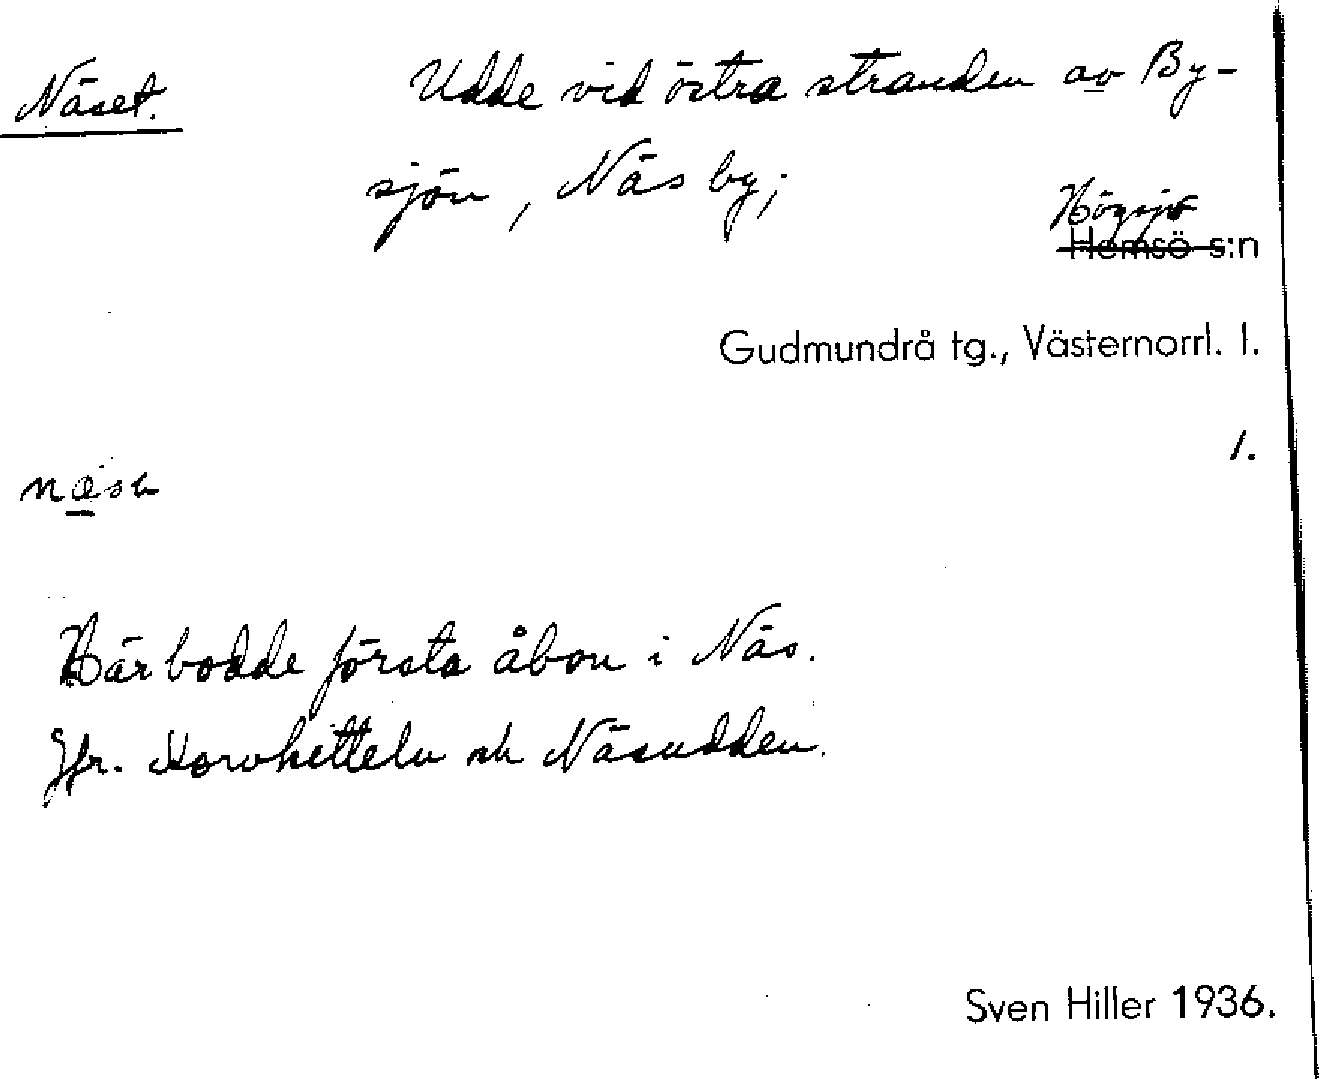 Näset. Udde vid östra stranden av By-
sjön, Näs by;
Högsjö
Hemsö s:n
Gudmundrå tg., Västernorrl. l.
1.
Här bodde första åbon i Näs.
Jfr. och Näsudden.
Sven Hiller 1936.